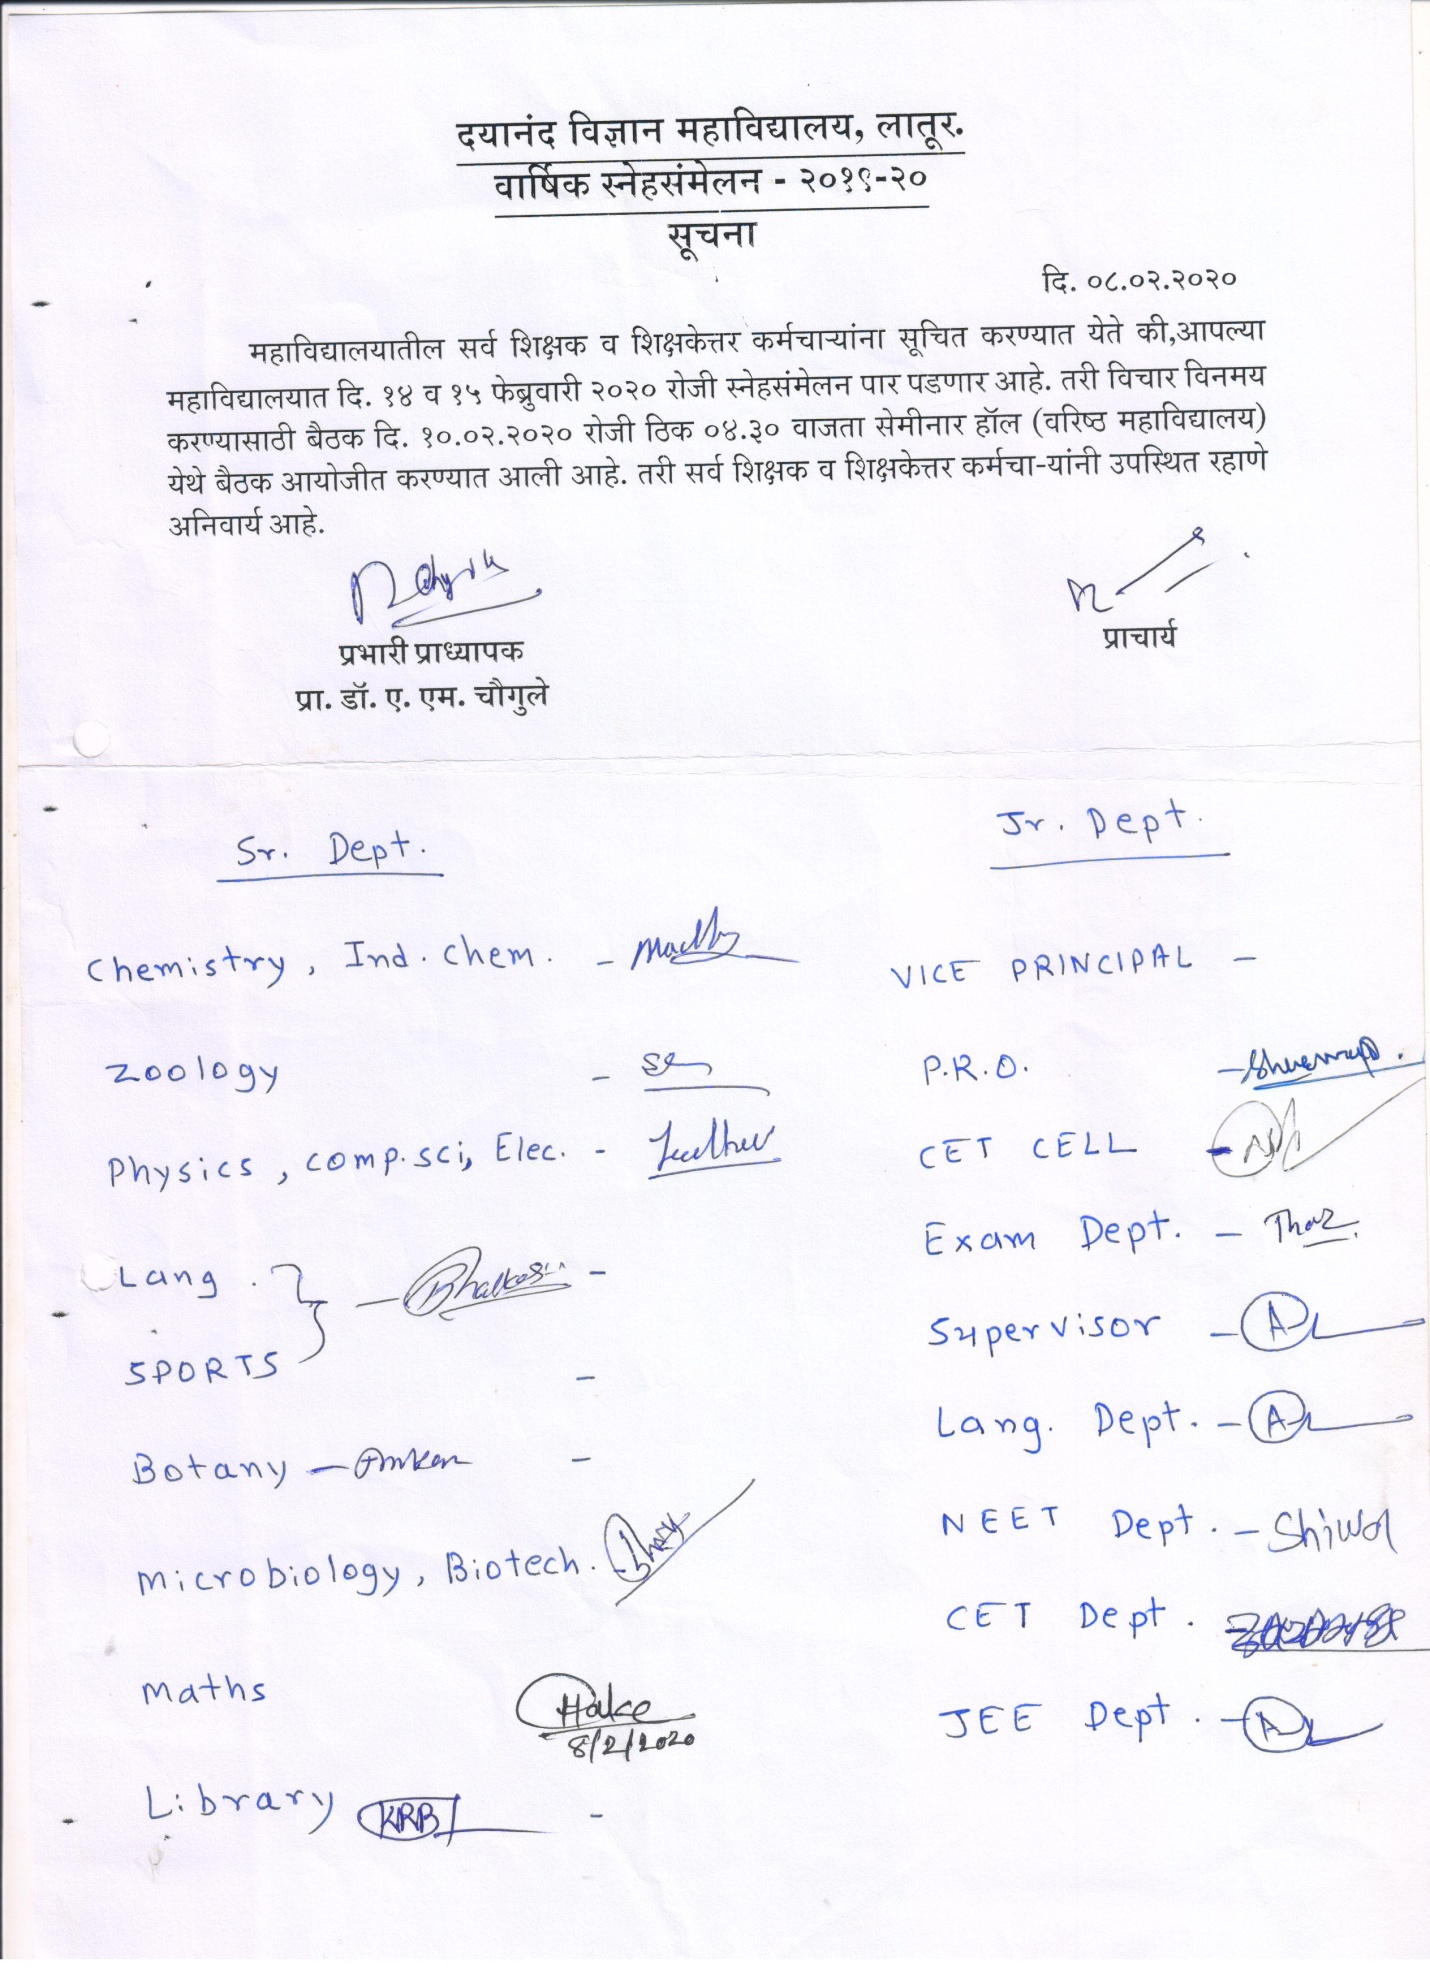 दयानंद विज्ञान महाविद्यालय, लातूर.
वार्षिक स्नेहसंमेलन - २०१९-२०
सूचना
दि. ०८.०२.२०२०
महाविद्यालयातील सर्व शिक्षक व शिक्षकेत्तर कर्मचाऱ्यांना सूचित करण्यात येते की,आपल्या
महाविद्यालयात दि. १४ व १५ फेब्रुवारी २०२० रोजी स्नेहसंमेलन पार पडणार आहे. तरी विचार विनमय
करण्यासाठी बैठक दि. १०.०२.२०२० रोजी ठिक ०४.३० वाजता सेमीनार हॉल (वरिष्ठ महाविद्यालय)
येथे बैठक आयोजीत करण्यात आली आहे. तरी सर्व शिक्षक व शिक्षकेत्तर कर्मचा-यांनी उपस्थित रहाणे
अनिवार्य आहे.
प्रभारी प्राध्यापक
प्रा. डॉ. ए. एम. चौगुले
प्राचार्य
Sr. Dept.
Chemistry, Ind. Chem. -
Zoology -
Physics, comp.sci, Elec. -
Lang. -
SPORTS -
Botany -
Microbiology, Biotech.
Maths
8/2/2020
Library KRB -
Jr. Dept.
VICE PRINCIPAL -
P.R.O. -
CET CELL -
Exam Dept. -
Supervisor - A
Lang. Dept. - A
NEET Dept. -
CET Dept.
JEE Dept. - A